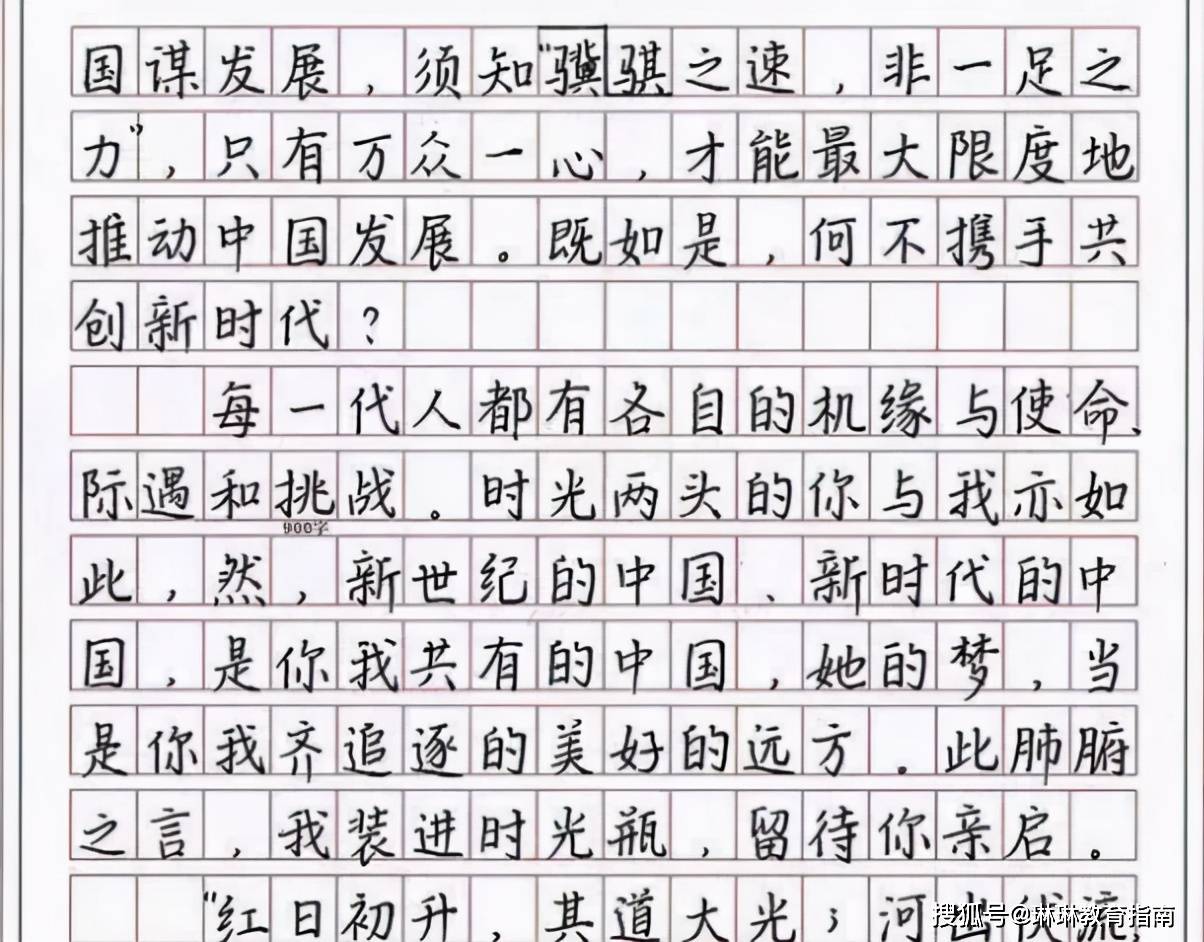 国谋发展，须知“骥骐之速，非一足之
力”，只有万众一心，才能最大限度地
推动中国发展。既如是，何不携手共
创新时代？
每一代人都有各自的机缘与使命、
际遇和挑战。时光两头的你与我亦如
900字
此，然，新世纪的中国、新时代的中
国，是你我共有的中国，她的梦，当
是你我齐追逐的美好的远方。此肺腑
之言，我装进时光瓶，留待你亲启。
“红日初升，其道大光；河出伏流
搜狐号@琳琳教育指南